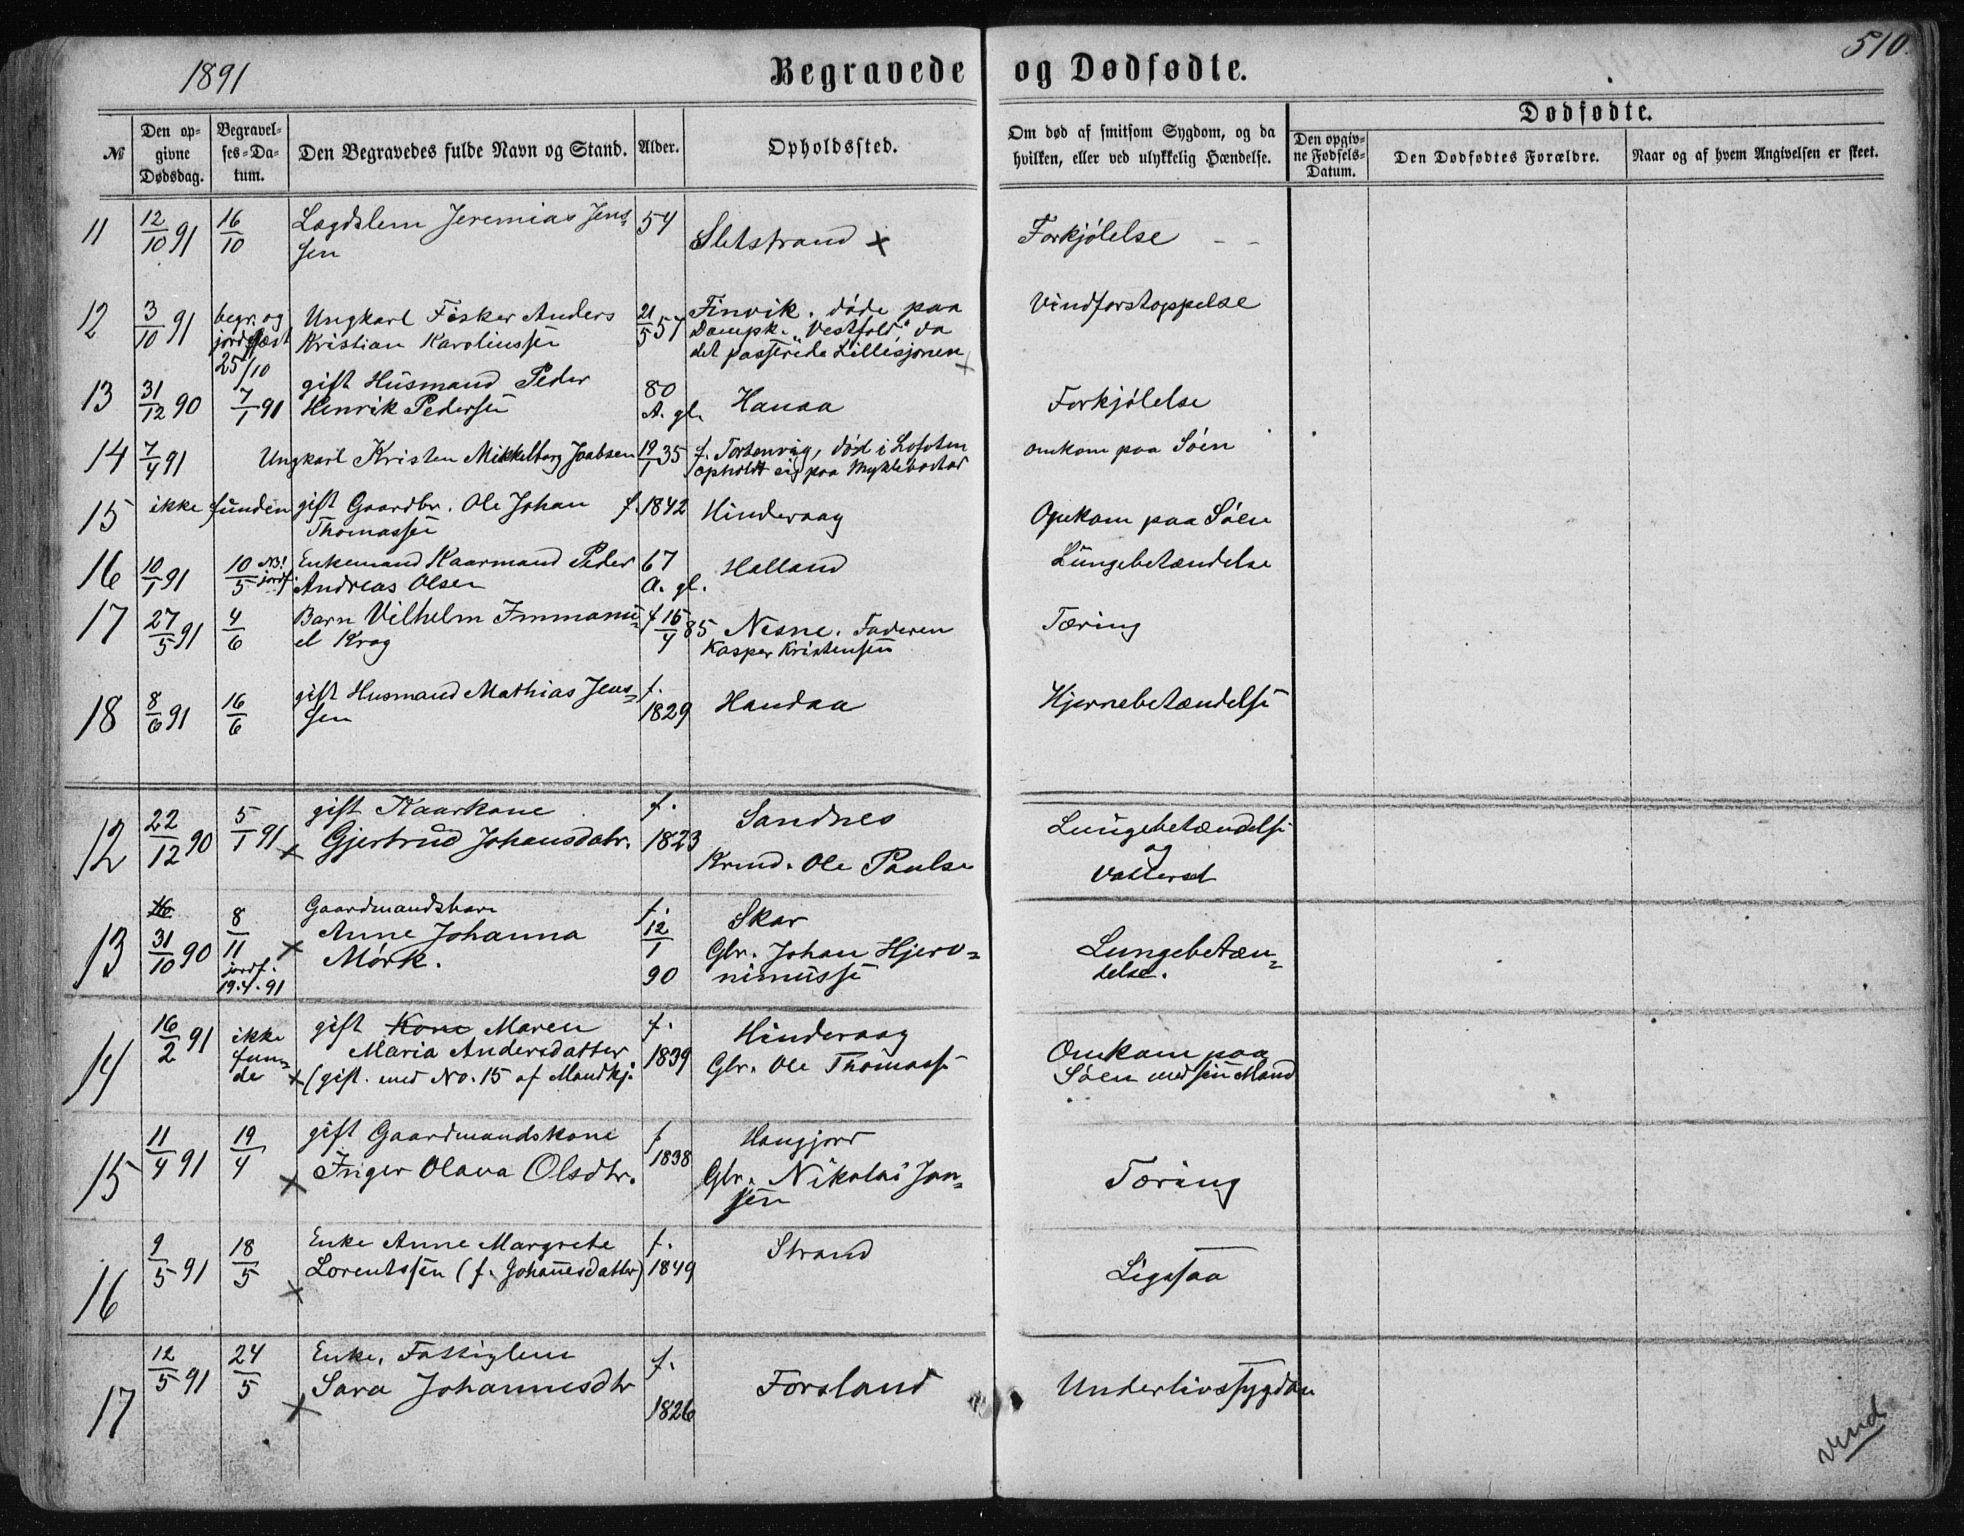 1891
Begravede og Dødfødte.
510.
№
Den opgivne Dødsdag.
Begravelses-Datum.
Den Begravedes fulde Navn og Stand.
Alder.
Opholdssted.
Om død af smitsom Sygdom, og da hvilken, eller ved ulykkelig Hændelse.
Dødfødte.
Den opgivne Fødsels-Datum.
Den Dødfødtes Forældre.
Naar og af hvem Angivelsen er skeet.
11 12/10 91 16/10 Lægdslem Jeremias Jens- 54 Sletstrand x Forkjølelse - -
sen
12 3/10 91 begr. og Ungkarl Fisker Anders 21/5 57 Finvik. døde paa Vindforstoppelse
jordfæst Kristian Karoliussen Dampsk. "Vestfold" da
25/10 det passerede Lillesjonen x
13 31/12 90 7/1 91 gift Husmand Peder 80 Hanaa Forkjølelse
Henrik Pedersen A. gl.
14 7/4 91 Ungkarl Kristen Mikkelborg Jacobsen 19/1 35 f. Tortenvig, død i Lofoten Omkom paa Søen
opholdt sig paa Myklebostad
15 ikke funden gift Gaardbr. Ole Johan f. 1842 Hinderaag Omkom paa Søen
Thomassen
16 10/1 91 10/5 NB! jordf. Enkemand Kaarmand Peder 67 Halland Lungebetændelse
Andreas Olsen A. gl.
17 27/5 91 4/6 Barn Vilhelm Immanu- f 15/4 85 Nesne. Faderen Tæring
el Krog Kasper Kristensen
18 8/6 91 16/6 gift Husmand Mathias Jens- f. 1829 Handaa Hjernebetændelse
sen
12 22/12 90 5/1 91 gift Kaarkone f. Sandnes Lungebetændelse
x Gjertrud Johansdatr. 1823 Krmd. Ole Paulse og
Vattersot
13 31/10 90 8/11 Gaardmandsbarn f. 12/1 Skar
x Anne Johanna Gbr. Johan Hjero- Lungebetæn-
jordf. Mørk. 90 nimusse delse.
19.4.91
14 16/2 91 ikke gift Kone Maren f. Hinderaag Omkom paa
fun- Maria Andersdatter 1839 Gbr. Ole Thomasse Søen med sin Mand
de x (gift. med No. 15 af Mandkj.
15 11/4 91 19/4 gift Gaardmandskone f 1838 Haugjord Tæring
x Inger Olava Olsdtr. Gbr. Nikolai Jan-
sen
16 9/5 91 18/5 Enke Anne Margrete f. Strand Ligsaa
x Lorentssen (f. Johannesdatter) 1849
17 12/5 91 24/5 Enke, Fattiglem f. Forsland Underlivssygdom
x Sara Johannesdtr 1826
vend